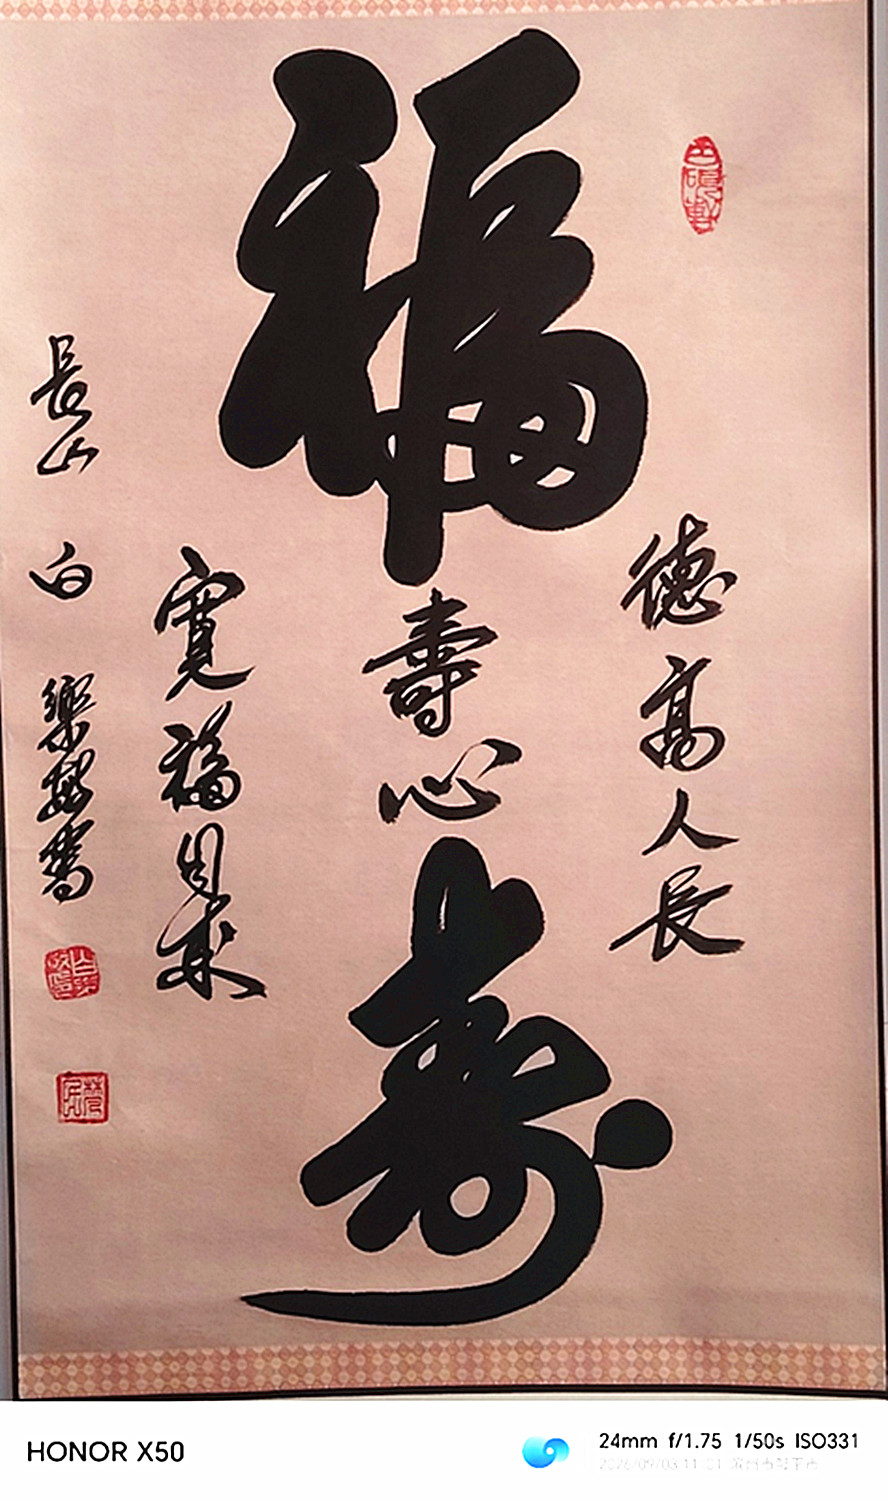 福
寿
德高人長
壽心
寬福自來
長山 白 樂
HONOR X50
24mm f/1.75 1/50s ISO331